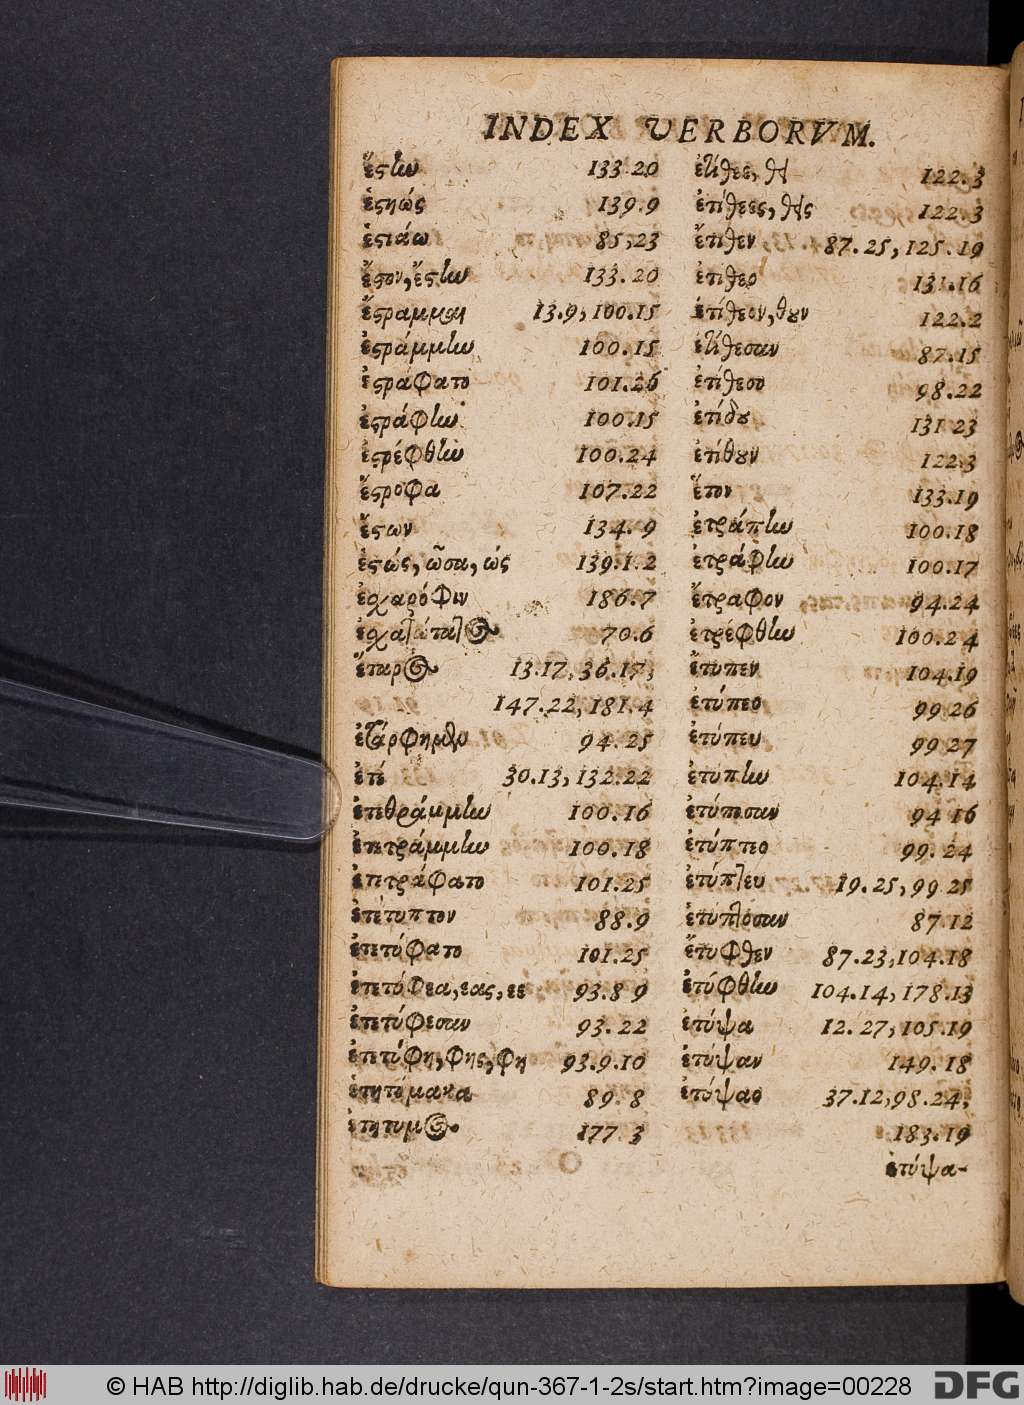 INDEX VERBORVM.
ἔςην 133.20
ἑςηώς 139.9
ἑςιάω 85,23
ἔςον, ἔςην 133.20
ἔςραμμαι 13.9, 100.15
ἐςράμμην 100.15
ἐςράφατο 101.26
ἐςράφην 100.15
ἐςρέφθην 100.24
ἔςροφα 107.22
ἔςων 134.9
ἑςώς, ῶσα, ώς 139.1.2
ἐχαρόφιν 186.7
70.6
ἕταρος 13.17, 36.17,
147.22, 181.4
94.25
ἐτί 30.13, 132.22
ἐτεθράμμην 100.16
ἐτετράμμην 100.18
ἐτετράφατο 101.25
ἐτέτυπτον 88.9
ἐτετύφατο 101.25
ἐτετύφεα, εας, εε 93.8 9
ἐτετύφεσαν 93.22
ἐτετύφη, φης, φη 93.9.10
ἐτητύμακα 89.8
ἐτήτυμος 177.3
ἐτίθεε, θει 122.3
ἐτίθεες, θεις 122.3
ἔτιθεν 87.25, 125.19
ἐτίθεο 131.16
ἐτίθεον, θουν 122.2
ἐτίθεσαν 87.15
ἐτίθεσο 98.22
ἐτίθου 131 23
ἐτίθουν 122.3
ἕτον 133.19
ἐτράπην 100.18
ἐτράφην 100.17
ἔτραφον 94.24
ἐτρέφθην 100.24
ἔτυπεν 104.19
ἐτύπεο 99 26
ἐτύπευ 99 27
ἐτύπην 104.14
ἐτύπησαν 94 16
ἐτύπτεο 99.24
ἐτύπτευ 19.25, 99 25
ἐτύπτοσαν 87.12
ἔτυφθεν 87.23, 104.18
ἐτύφθην 104.14, 178.13
ἐτύψα 12.27, 105.19
ἐτύψαν 149.18
ἐτύψαο 37.12, 98.24,
183.19
ἐτύψα-
© HAB http://diglib.hab.de/drucke/qun-367-1-2s/start.htm?image=00228 DFG